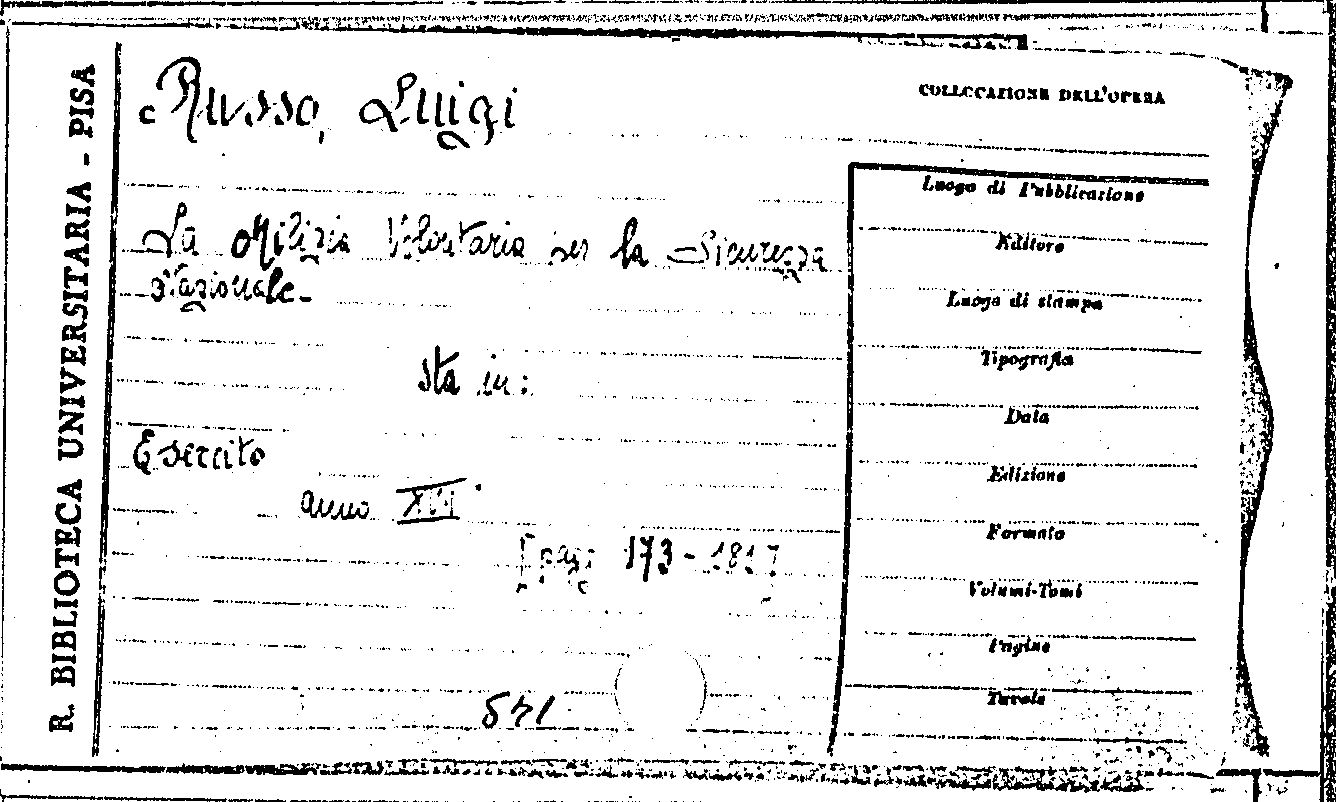 R. BIBLIOTECA UNIVERSITARIA - PISA
Russo, Luigi
La Milizia Volontaria per la Sicurezza
Nazionale.
sta in:
Esercito
anno XVI
[pag. 173-181]
541
COLLOCAZIONE DELL'OPERA
Luogo di Pubblicazione
Editore
Luogo di stampa
Tipografia
Data
Edizione
Formato
Volumi-Tomi
Pagine
Tavole